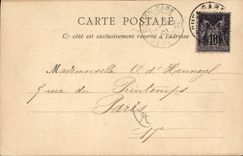 CARTE POSTALE
Ce côté est exclusivement réservé à l'adresse
Mademoiselle O. d'Hannezel
7 rue du Printemps
Paris
17e